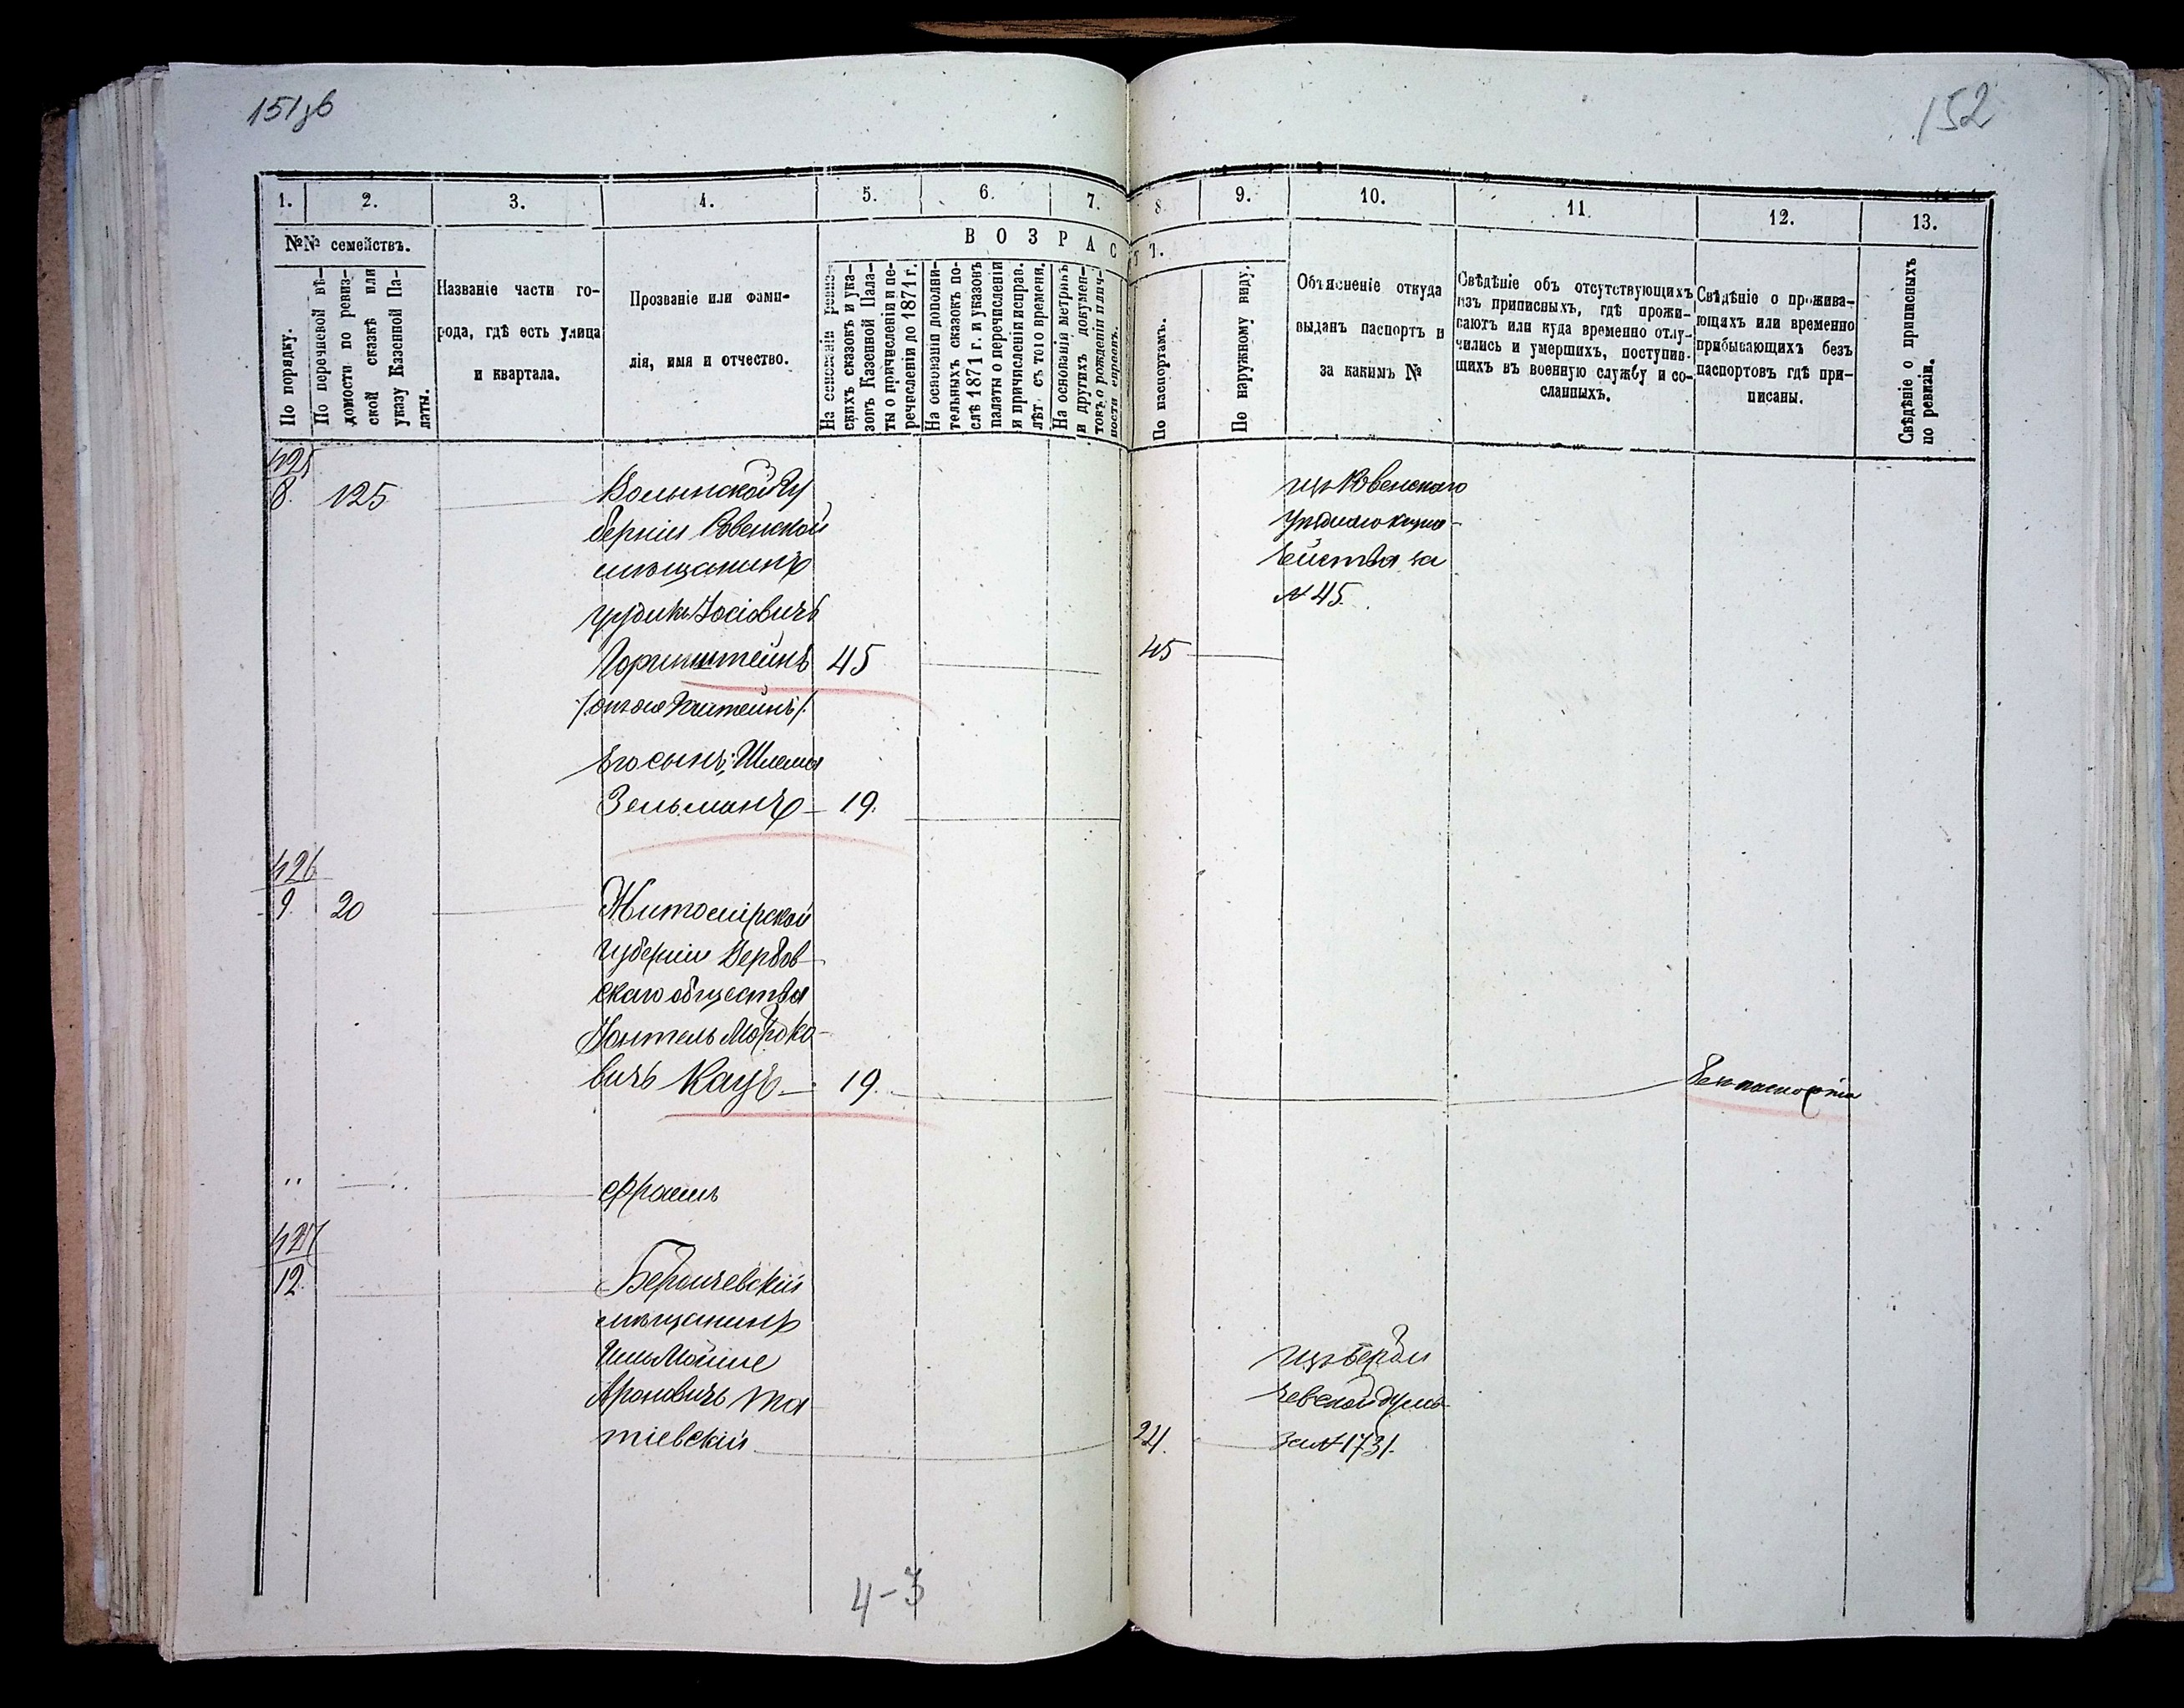 151 об
152
1.
2.
3.
4.
5.
6.
7.
8.
9.
10.
11.
12.
13.
№№ семействъ.
ВОЗРАСТ.
По порядку.
По перечневой вѣ-
домости по ревиз-
ской сказкѣ или
указу Казенной Па-
латы.
Названіе части го-
рода, гдѣ есть улица
и квартала.
Прозваніе или фами-
лія, имя и отчество.
На основаніи ревиз-
скихъ сказокъ и ука-
зовъ Казенной Пала-
ты о причисленіи и пе-
речисленіи до 1871 г.
На основаніи дополни-
тельныхъ сказокъ по-
слѣ 1871 г. и указовъ
палаты о перечисленіи
и причисленіи исправ.
лѣт. съ того времени.
На основаніи метрикъ
и другихъ докумен-
товъ о рожденіи и лич-
ности евреевъ.
По паспортамъ.
По наружному виду.
Объясненіе откуда
выданъ паспортъ и
за какимъ №
Свѣдѣніе объ отсутствующихъ
изъ приписныхъ, гдѣ прожи-
ваютъ или куда временно отлу-
чились и умершихъ, поступив-
шихъ въ военную службу и со-
сланныхъ.
Свѣдѣніе о прожива-
ющихъ или временно
прибывающихъ безъ
паспортовъ гдѣ при-
писаны.
Свѣдѣніе о приписныхъ
по ревизіи.
425
8. 125
Волынской Гу
берніи Ровенской
мѣщанинъ
Іосіовичъ
Горинштейнъ 45
45
изъ Ровенскаго
уѣзднаго казна-
чейства за
№ 45.
его сынъ: Шлема
Зельманъ – 19.
426
9. 20
Житомірской
губерніи Вербов-
скаго общества
Мордко-
вичъ Кацъ – 19.
безъ паспорта
" — "
427
12.
Бердичевскій
мѣщанинъ
Мойше
Ароновичъ Ма
тіевскій
21.
изъ Берди
чевской думы
за № 1731.
4-3